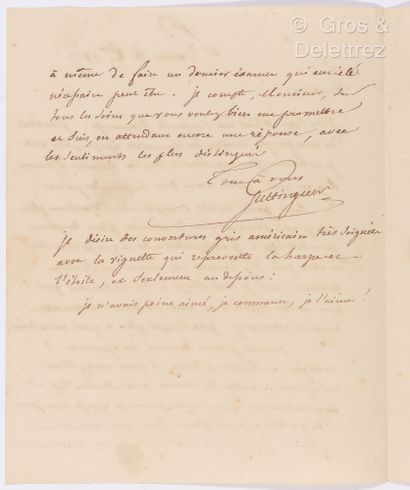 © Gros &
Delettrez
à même de faire un dernier examen qui eut été
nécessaire peut être. je compte, Monsieur, sur
tous les soins que vous voulez bien me promettre
et suis, en attendant encore une réponse, avec
les sentiments les plus distingués
Tout à vous
Guttinguer
je désire des couvertures gris américain très soignées
avec la vignette qui représente la harpe et
l'étoile, et seulement au dessous :
je n'avais point aimé, je commence, je t'aime !